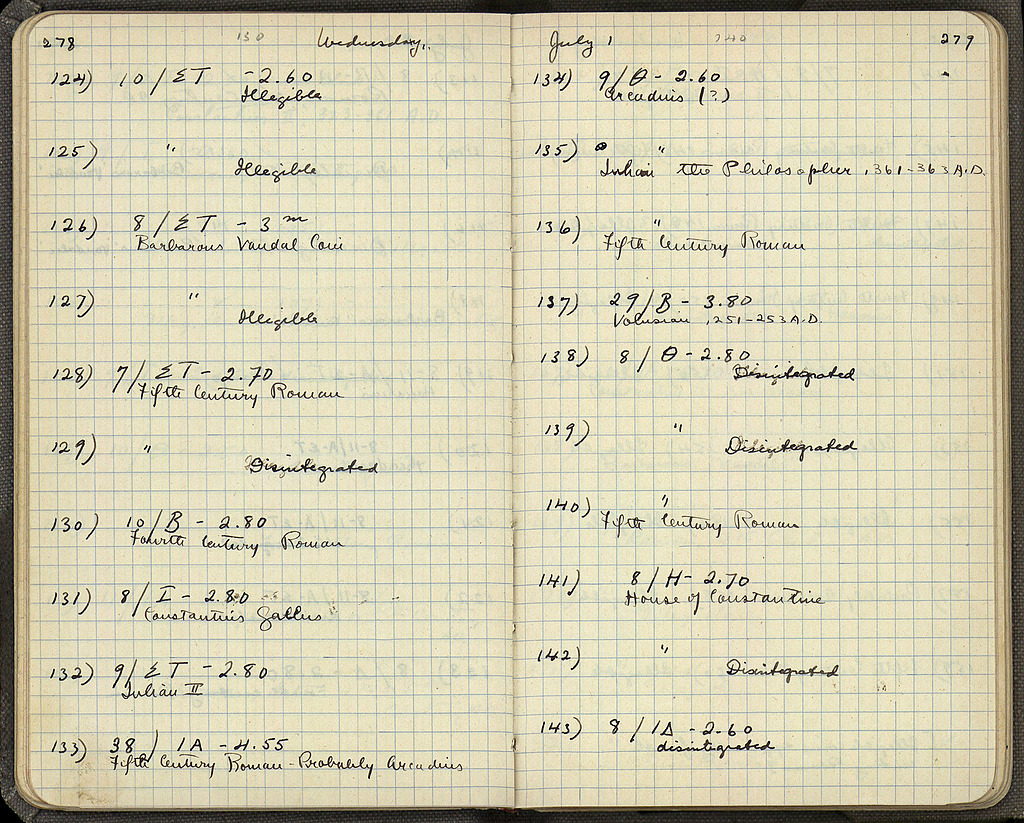 278 130 Wednesday,
124) 10 / ΣT - 2.60
Illegible
125) "
Illegible
126) 8 / ΣT - 3 m
Barbarous Vandal Coin
127) "
Illegible
128) 7 / ΣT - 2.70
Fifth Century Roman
129) "
Disintegrated
130) 10 / B - 2.80
Fourth Century Roman
131) 8 / I - 2.80
Constantius Gallus
132) 9 / ΣT - 2.80
Julian II
133) 38 / IA - 4.55
Fifth Century Roman - Probably Arcadius
July 1 140 279
134) 9 / Θ - 2.60
Arcadius (?)
135) "
Julian the Philosopher, 361-363 A.D.
136) "
Fifth Century Roman
137) 29 / B - 3.80
Volusian, 251-253 A.D.
138) 8 / Θ - 2.80
Disintegrated
139) "
Disintegrated
140) "
Fifth Century Roman
141) 8 / H - 2.70
House of Constantine
142) "
Disintegrated
143) 8 / IΔ - 2.60
disintegrated